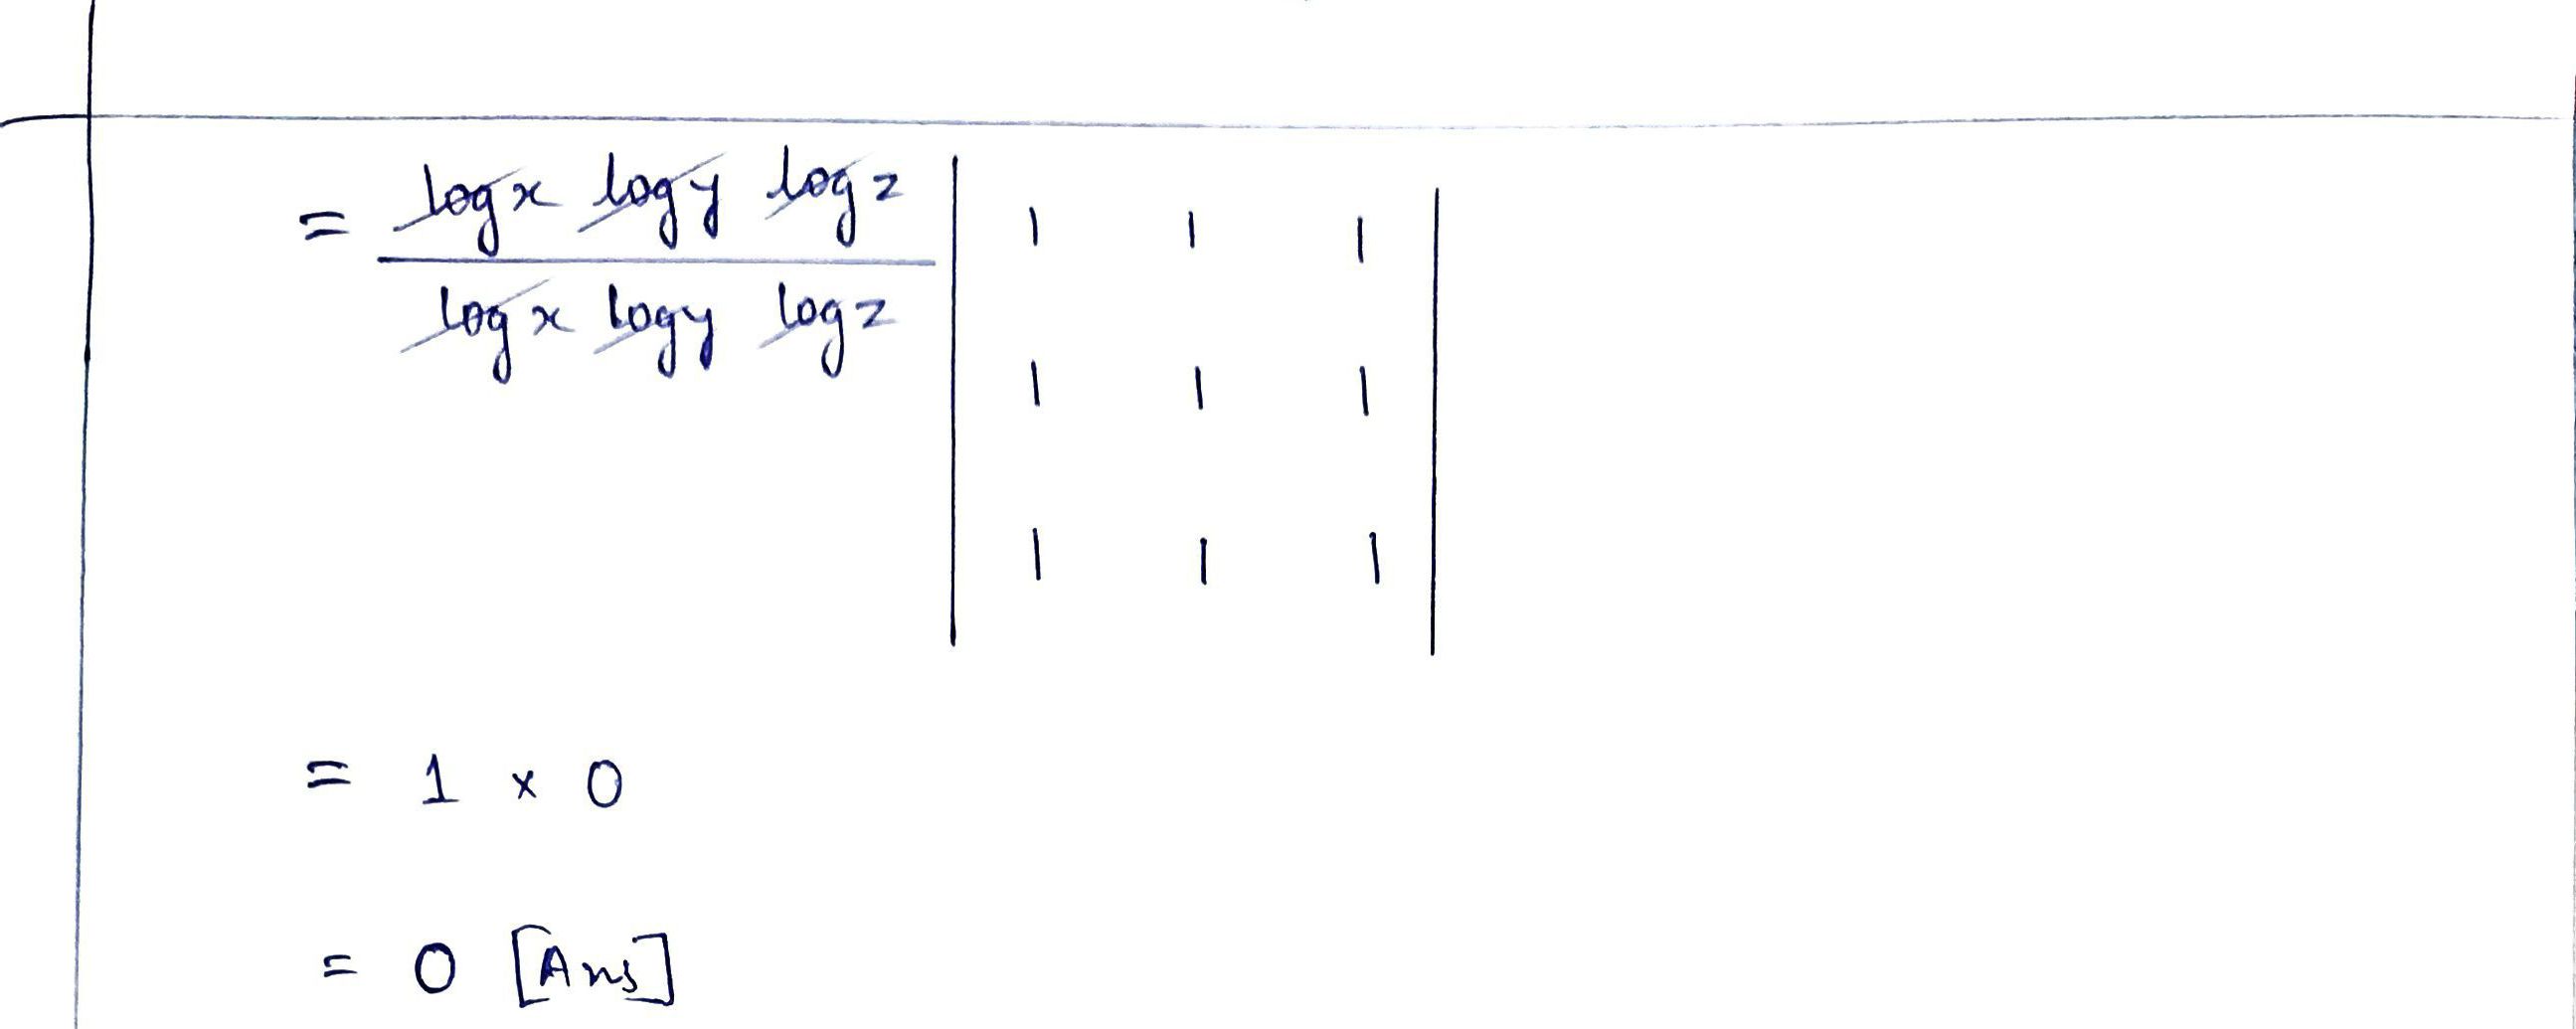 = log x log y log z / log x log y log z | 1 1 1 |
| 1 1 1 |
| 1 1 1 |
= 1 × 0
= 0 [Ans]